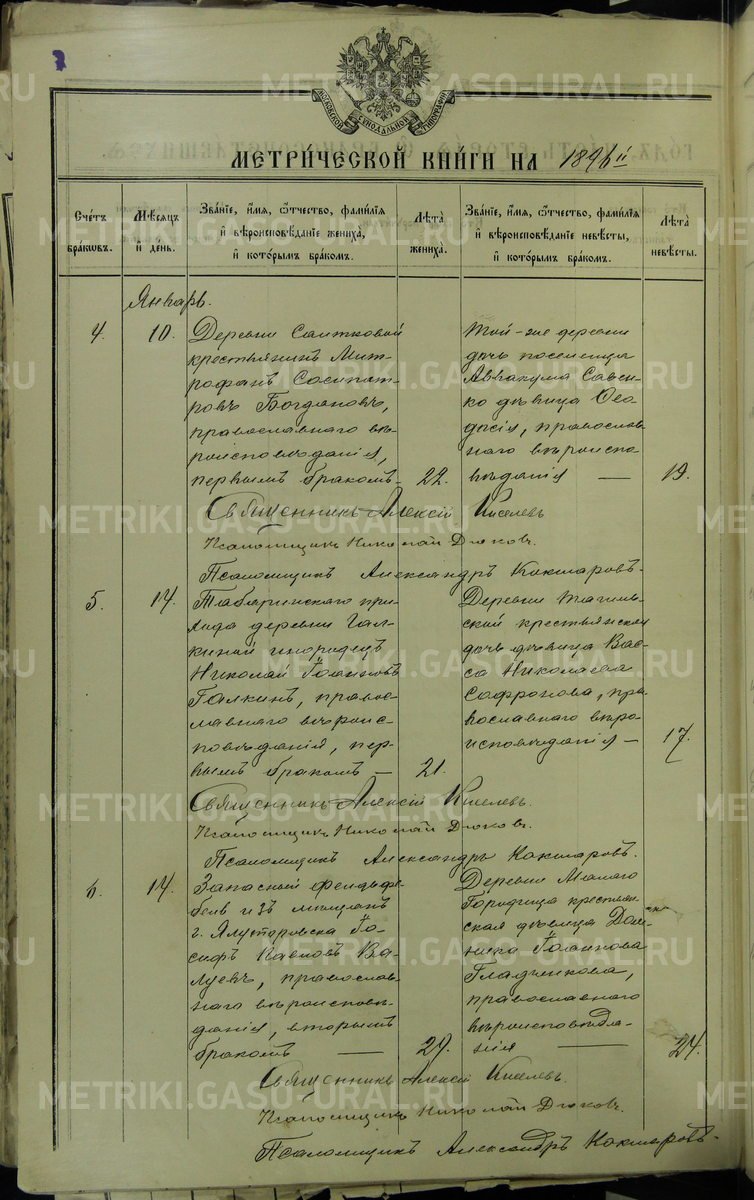 МОСКОВСКОЙ СѴНОДАЛЬНОЙ ТИПОГРАФІИ
МЕТРИ́ЧЕСКОЙ КНИ́ГИ НА 1896й
Сче́тъ бра́кωвъ.
Мѣ́сяцъ и҆ де́нь.
Зва́нїе, и҆́мя, ѻ҆́тчество, фами́лїѧ и҆ вѣроисповѣ́данїе жениха̀, и҆ кото́рымъ бра́комъ.
Лѣ́та жениха̀.
Зва́нїе, и҆́мя, ѻ҆́тчество, фами́лїѧ и҆ вѣроисповѣ́данїе невѣ́сты, и҆ кото́рымъ бра́комъ.
Лѣ́та невѣ́сты.
Январь.
4.
10.
Деревни Саитковой
крестьянинъ Мит-
рофанъ Сосипат-
ровъ Богдановъ,
православнаго вѣ-
роисповѣданія,
первымъ бракомъ-
22.
Той-же деревни
дочь поселенца
Аввакума Савен-
ко дѣвица Ѳео-
досія, православ-
наго вѣроиспо-
вѣданія —
19.
Священникъ Алексій Киселевъ
Псаломщикъ Николай Дюковъ.
Псаломщикъ Александръ Кокшаровъ.
5.
14.
Табаринскаго при-
хода деревни Гал-
киной инородецъ
Николай Іоанновъ
Галкинъ, правос-
лавнаго вѣроис-
повѣданія, пер-
вымъ бракомъ —
21.
Деревни Тагиль-
ской крестьянская
дочь дѣвица Вас-
са Николаева
Сафронова, пра-
вославнаго вѣро-
исповѣданія —
17.
Священникъ Алексій Киселевъ.
Псаломщикъ Николай Дюковъ.
Псаломщикъ Александръ Кокшаровъ.
6.
14.
Запасный фельдфе-
бель изъ мѣщанъ
г. Ялуторовска Іо-
сифъ Павловъ Ва-
луевъ, православ-
наго вѣроисповѣ-
данія, вторымъ
бракомъ —
29.
Деревни Малаго
Городища крестьян-
ская дѣвица Дом-
ника Іоаннова
Гладченкова,
православнаго
вѣроисповѣда-
нія —
24.
Священникъ Алексій Киселевъ.
Псаломщикъ Николай Дюковъ.
Псаломщикъ Александръ Кокшаровъ.
METRIKI.GASO-URAL.RU